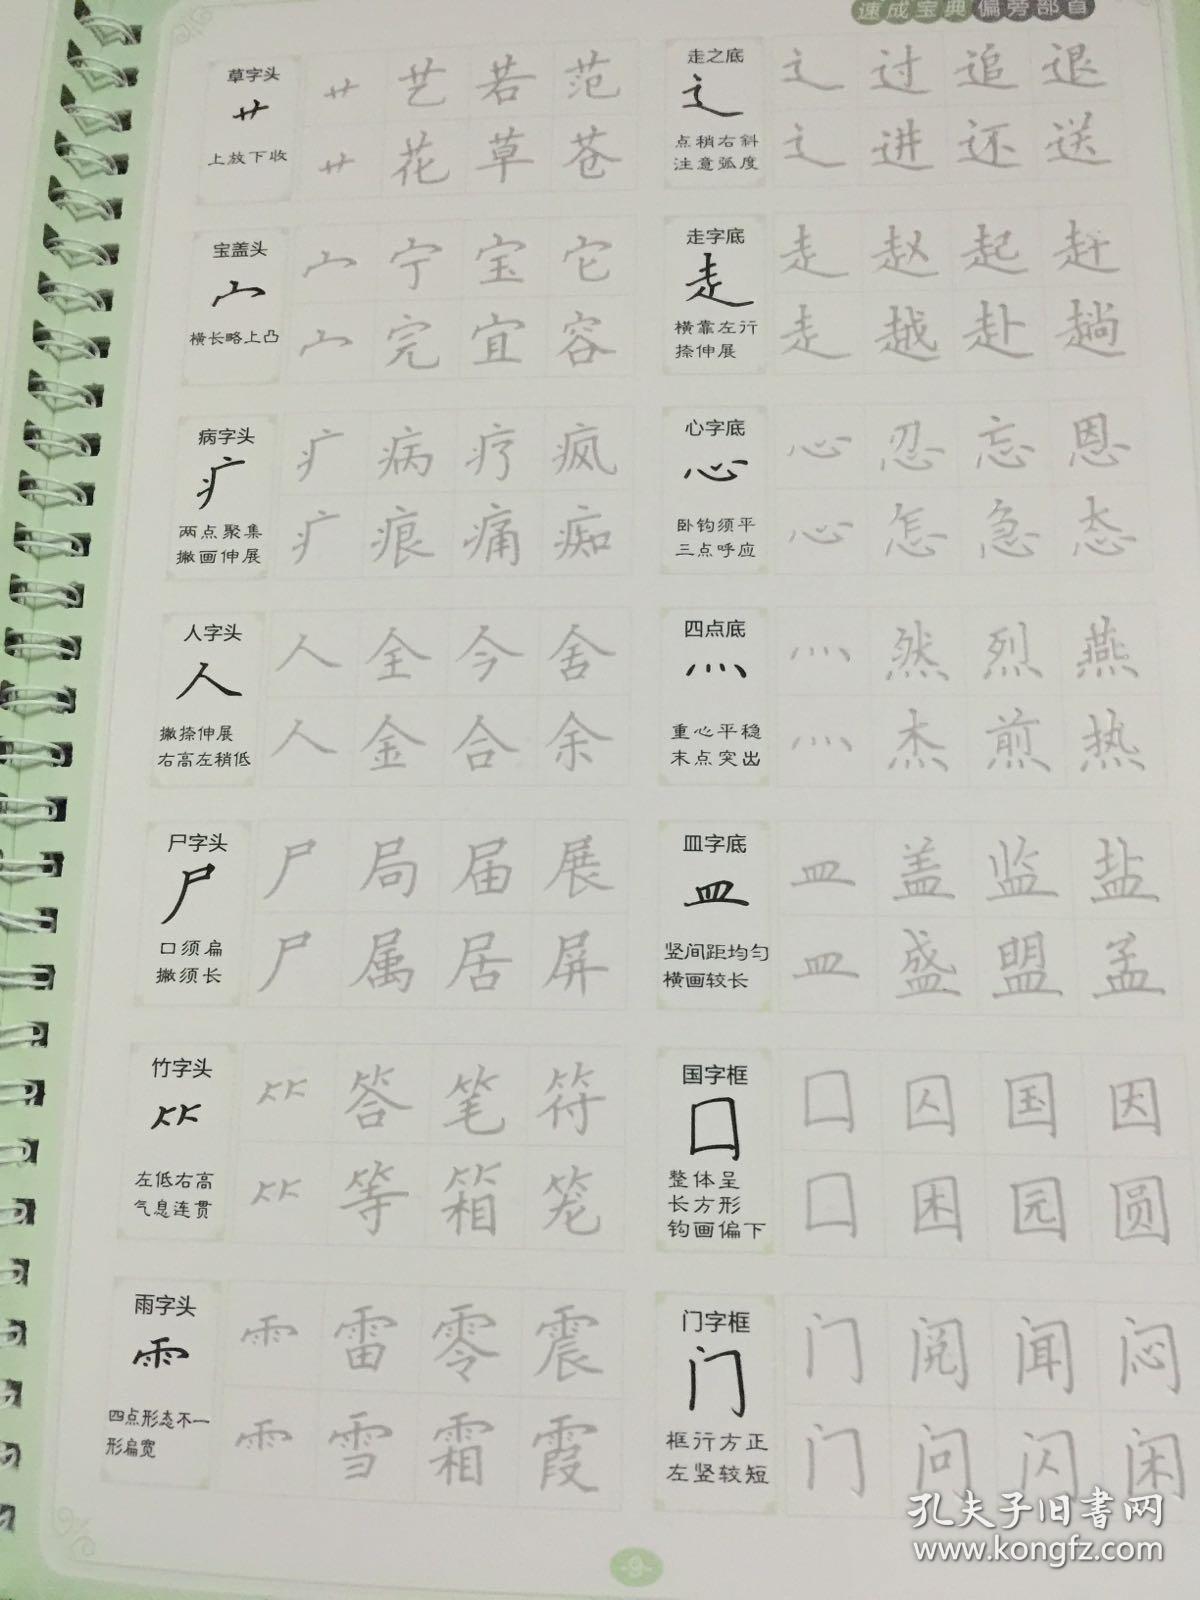 速成宝典 偏旁部首
草字头
艹
上放下收
艹 艺 若 范
艹 花 草 苍
宝盖头
宀
横长略上凸
宀 宁 宝 它
宀 完 宜 容
病字头
疒
两点聚集
撇画伸展
疒 病 疗 疯
疒 痕 痛 痴
人字头
人
撇捺伸展
右高左稍低
人 全 今 舍
人 金 合 余
尸字头
尸
口须扁
撇须长
尸 局 届 展
尸 属 居 屏
竹字头
⺮
左低右高
气息连贯
⺮ 答 笔 符
⺮ 等 箱 笼
雨字头
⻗
四点形态不一
形扁宽
⻗ 雷 零 震
⻗ 雪 霜 霞
走之底
辶
点稍右斜
注意弧度
辶 过 追 退
辶 进 还 送
走字底
走
横靠左行
捺伸展
走 赵 起 赶
走 越 赴 趟
心字底
心
卧钩须平
三点呼应
心 忍 忘 恩
心 怎 急 态
四点底
灬
重心平稳
末点突出
灬 然 烈 燕
灬 杰 煎 热
皿字底
皿
竖间距均匀
横画较长
皿 盖 监 盐
皿 盛 盟 孟
国字框
囗
整体呈
长方形
钩画偏下
囗 囚 国 因
囗 困 园 圆
门字框
门
框行方正
左竖较短
门 阅 闻 闷
门 问 闪 闲
·9·
孔夫子旧书网
www.kongfz.com